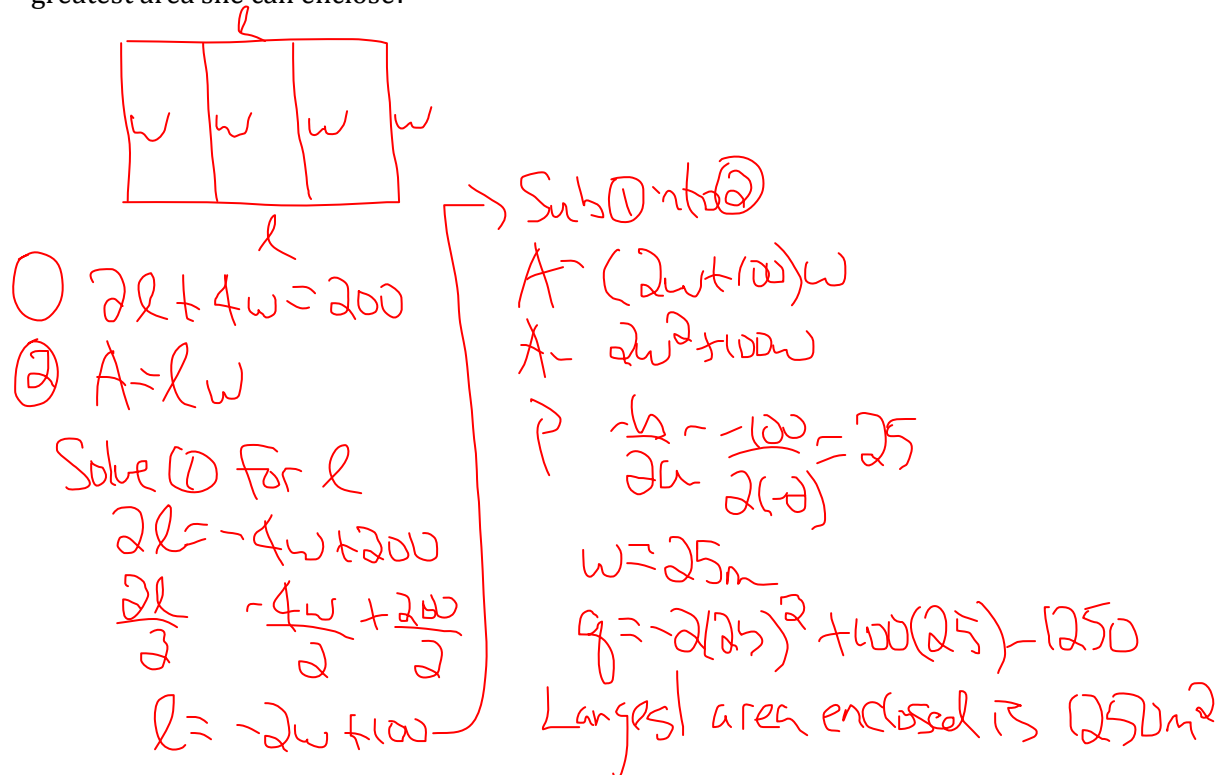 greatest area she can enclose?
l
w w w w
l
① 2l + 4w = 200
② A = lw
Solve ① for l
2l = -4w + 200
2l/2 -4w/2 + 200/2
l = -2w + 100
Sub ① into ②
A = (2w + 100)w
A = 2w² + 100w
P -b/2a = -100/2(-2) = 25
w = 25m
q = -2(25)² + 100(25) = 1250
Largest area enclosed is 1250m²